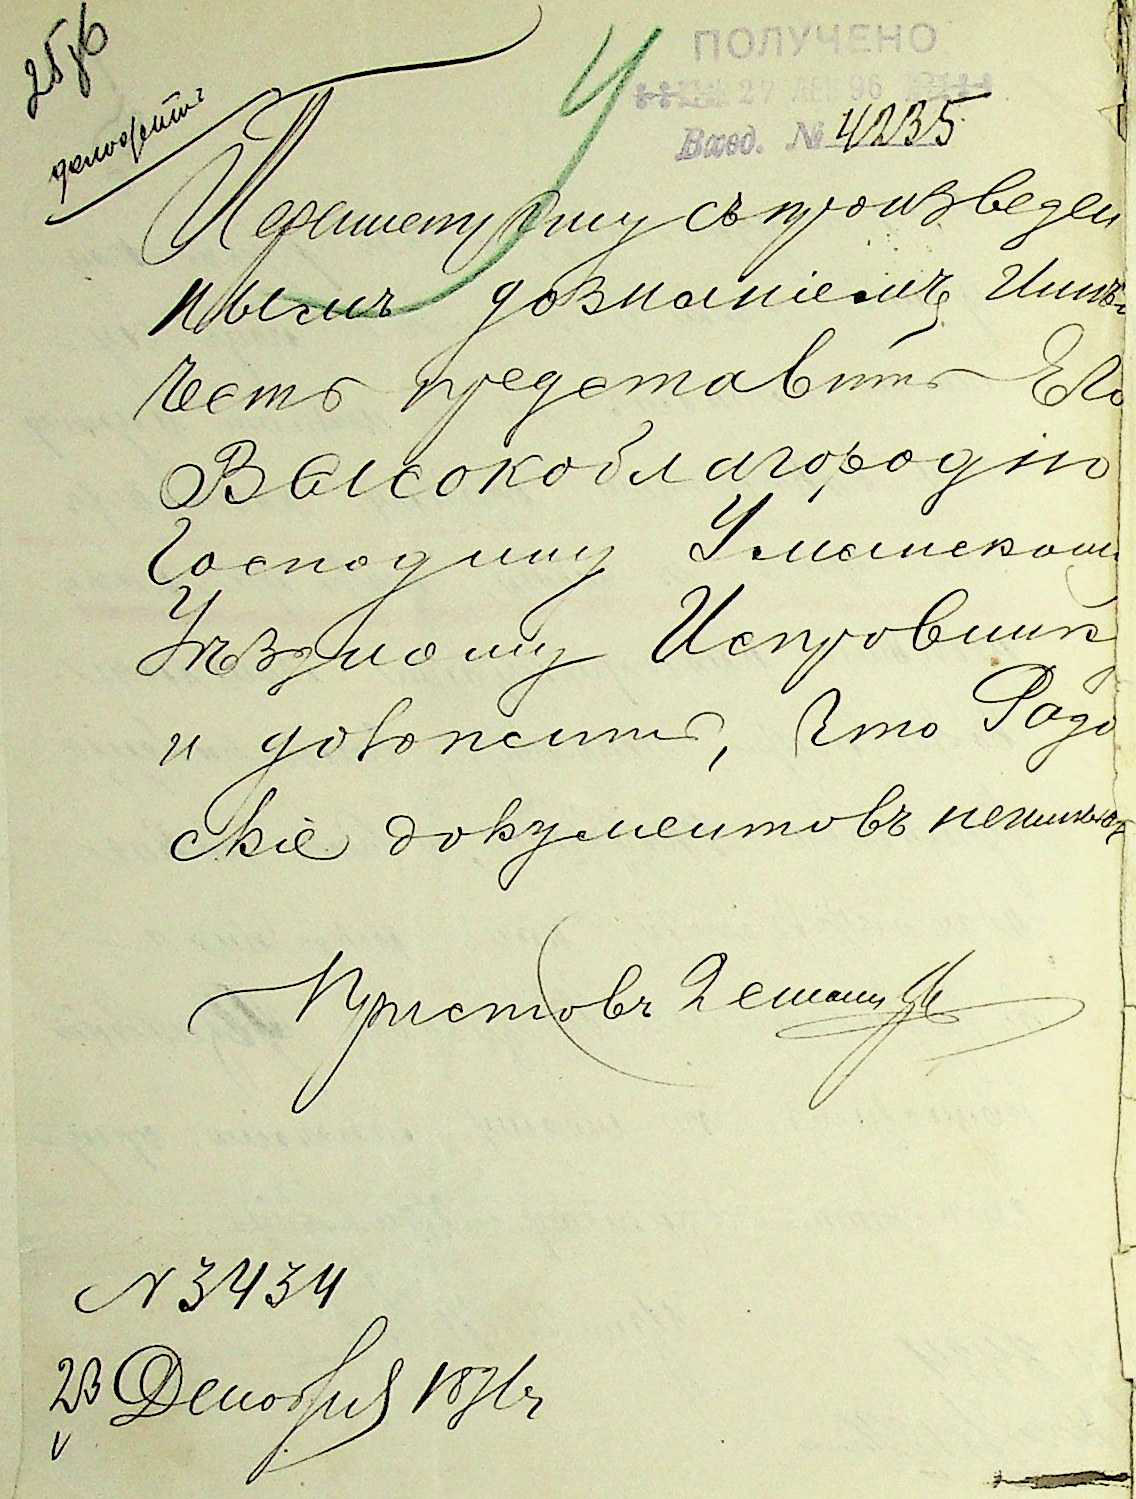 25/6
доложить
ПОЛУЧЕНО
27 ДЕК 96
Вход. № 4235
Переписку сію съ произведен
нымъ дознаніемъ Имѣю
честь представить Его
Высокоблагородію
Господину Уманскому
Уѣздному Исправнику
и доложить, что Радо
скіе документовъ неимѣютъ
Приставъ
N 3434
23 Декабря 1896 г